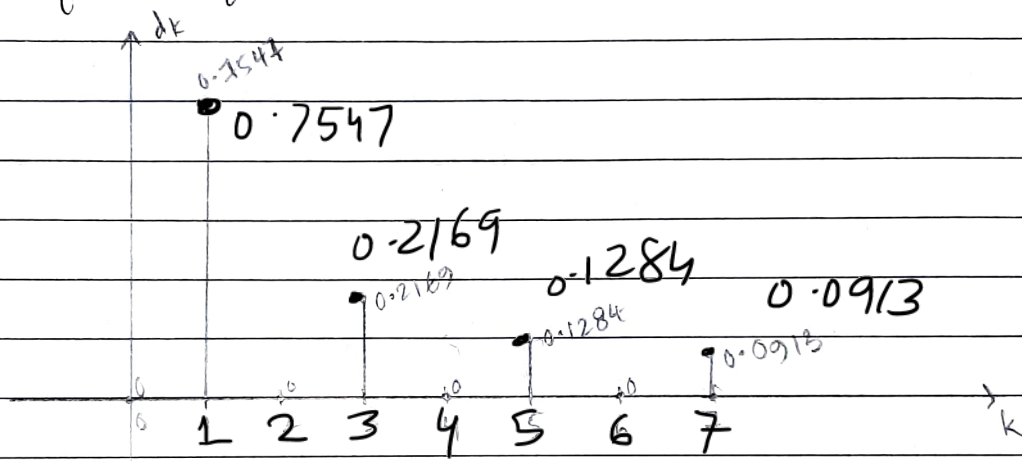 dk
0.7547
0.7547
0.2169
0.2169
0.1284
0.1284
0.0913
0.0913
0 0 0 0
0 1 2 3 4 5 6 7 k